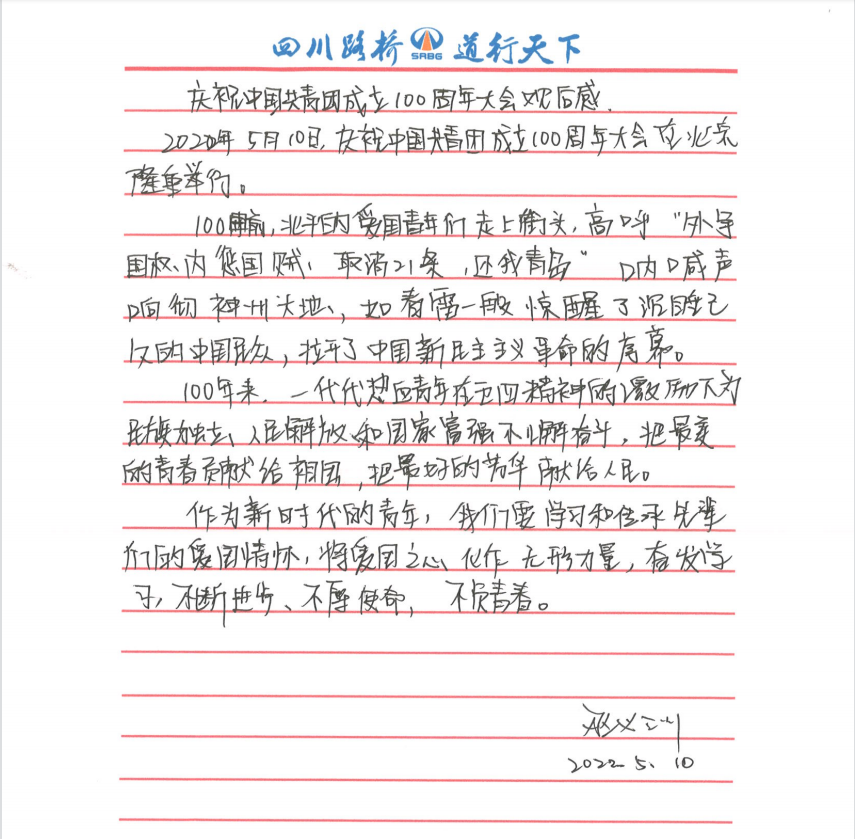 四川路桥 SRBG 道行天下
庆祝中国共青团成立100周年大会观后感.
2022年5月10日,庆祝中国共青团成立100周年大会在北京
隆重举行。
100年前,北平的爱国青年们走上街头,高呼“外争
国权、内惩国贼、取消21条,还我青岛”呐喊声
响彻神州大地、,如春雷一般惊醒了沉睡已
久的中国民众,拉开了中国新民主主义革命的序幕。
100年来.一代代热血青年在五四精神的激励下为
民族独立、人民解放、和国家富强不懈奋斗,把最美
的青春贡献给祖国,把最好的芳华献给人民。
作为新时代的青年,我们要学习和传承先辈
们的爱国情怀,将爱国之心、化作无形力量,奋发学
习,不断进步、不辱使命,不负青春。
2022.5.10